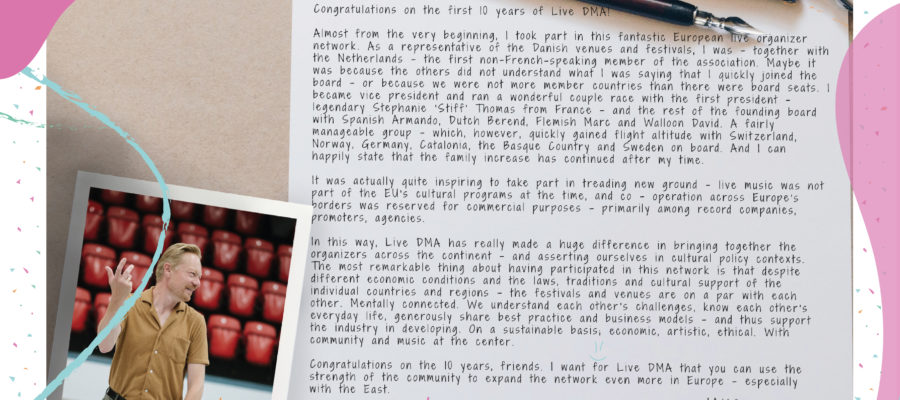 Congratulations on the first 10 years of Live DMA!
Almost from the very beginning, I took part in this fantastic European live organizer
network. As a representative of the Danish venues and festivals, I was - together with
the Netherlands - the first non-French-speaking member of the association. Maybe it
was because the others did not understand what I was saying that I quickly joined the
board - or because we were not more member countries than there were board seats. I
became vice president and ran a wonderful couple race with the first president -
legendary Stephanie 'Stiff' Thomas from France - and the rest of the founding board
with Spanish Armando, Dutch Berend, Flemish Marc and Walloon David. A fairly
manageable group - which, however, quickly gained flight altitude with Switzerland,
Norway, Germany, Catalonia, the Basque Country and Sweden on board. And I can
happily state that the family increase has continued after my time.
It was actually quite inspiring to take part in treading new ground - live music was not
part of the EU's cultural programs at the time, and co - operation across Europe's
borders was reserved for commercial purposes - primarily among record companies,
promoters, agencies.
In this way, Live DMA has really made a huge difference in bringing together the
organizers across the continent - and asserting ourselves in cultural policy contexts.
The most remarkable thing about having participated in this network is that despite
different economic conditions and the laws, traditions and cultural support of the
individual countries and regions - the festivals and venues are on a par with each
other. Mentally connected. We understand each other's challenges, know each other's
everyday life, generously share best practice and business models - and thus support
the industry in developing. On a sustainable basis; economic, artistic, ethical. With
community and music at the center.
Congratulations on the 10 years, friends. I want for Live DMA that you can use the
strength of the community to expand the network even more in Europe - especially
with the East.